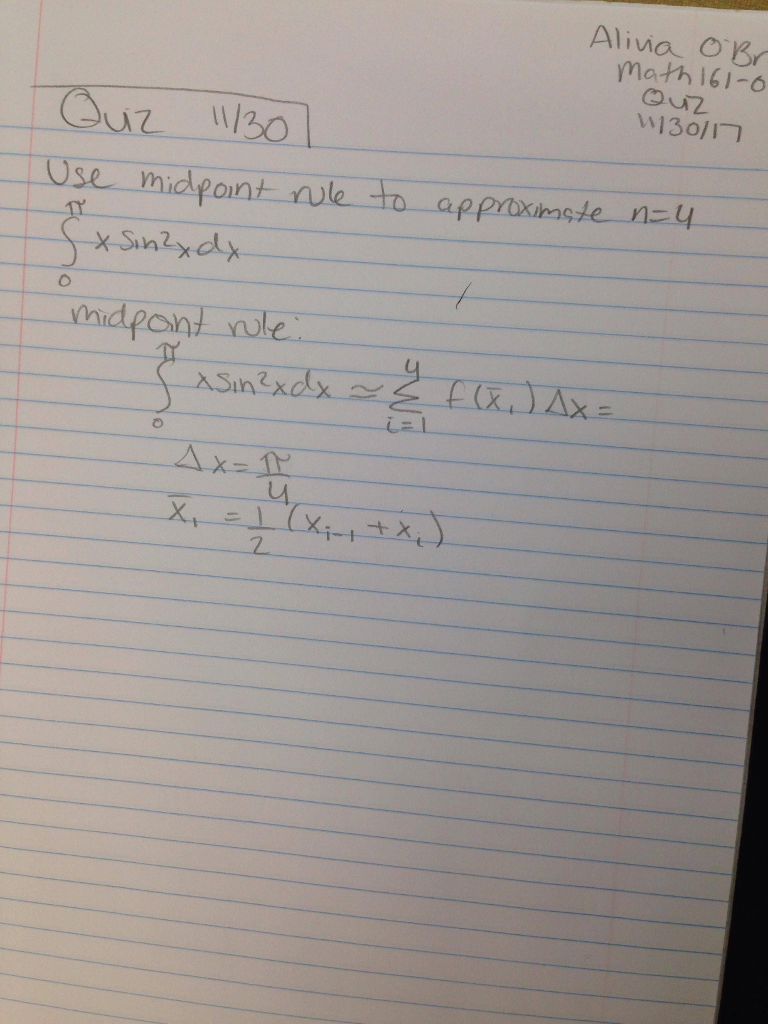 Alivia O'Br
Math 161-0
Quiz
11/30/17
Quiz 11/30
Use midpoint rule to approximate n=4
∫₀^π x sin²x dx
midpoint rule:
∫₀^π x sin²x dx ≈ Σ_{i=1}^{4} f(x̄ᵢ) Δx =
Δx = π/4
x̄ᵢ = 1/2 (xᵢ₋₁ + xᵢ)